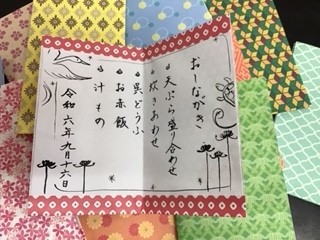 おしながき
天ぷら盛り合わせ
炊きあわせ
呉どうふ
お赤飯
汁もの
令和六年九月十六日